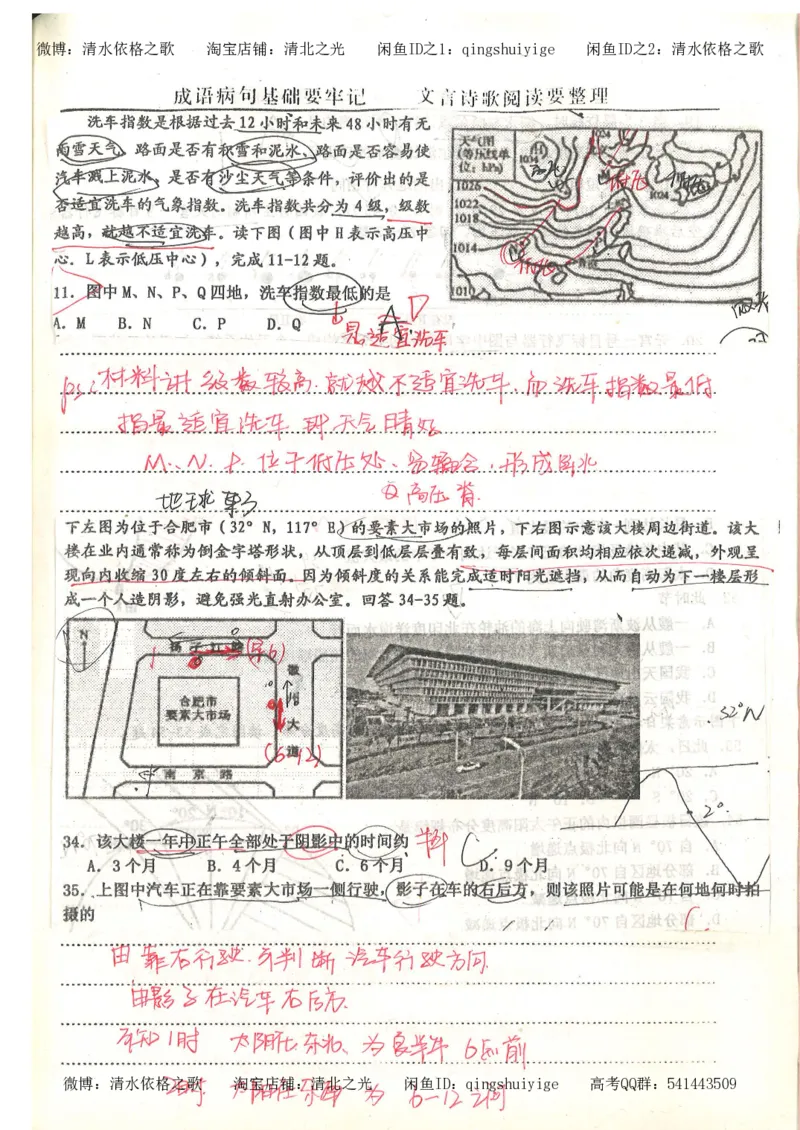 微博：清水依格之歌 淘宝店铺：清北之光 闲鱼ID之1：qingshuiyige 闲鱼ID之2：清水依格之歌
成语病句基础要牢记 文言诗歌阅读要整理
洗车指数是根据过去12小时和未来48小时有无
雨雪天气、路面是否有积雪和泥水、路面是否容易使
汽车溅上泥水、是否有沙尘天气等条件，评价出的是
否适宜洗车的气象指数。洗车指数共分为4级，级数
越高，就越不适宜洗车。读下图（图中H表示高压中
心．L表示低压中心），完成11-12题。
天气图
(等压线单
位：hPa)
1034
1024
1024
1026
1022
1018
1014
1010
11．图中M、N、P、Q四地，洗车指数最低的是
A．M B．N C．P D．Q
D
是适宜洗车
ps：材料讲级数较高，就越不适宜洗车，而洗车指数最低
指最适宜洗车 即天气晴好
M、N、P.位于低压处、易辐合，形成降水
Q高压脊.
下左图为位于合肥市（32°N，117°E）的要素大市场的照片，下右图示意该大楼周边街道。该大
楼在业内通常称为倒金字塔形状，从顶层到低层层叠有数，每层间面积均相应依次递减，外观呈
现向内收缩30度左右的倾斜面。因为倾斜度的关系能完成适时阳光遮挡，从而自动为下一楼层形
成一个人造阴影，避免强光直射办公室。回答34-35题。
N
扬子江路
徽州大道
合肥市
要素大市场
南京路
(6-12)
32°N
2°
34．该大楼一年中正午全部处于阴影中的时间约
A．3个月 B．4个月 C．6个月 D．9个月
C
35．上图中汽车正在靠要素大市场一侧行驶，影子在车的右后方，则该照片可能是在何地何时拍
摄的
C.
由靠右行驶.可判断汽车行驶方向.
由影子在汽车右后方.
可知1时 太阳在东北、为夏半年6点前
太阳在东南 为 6-12之间
微博：清水依格之歌 淘宝店铺：清北之光 闲鱼ID：qingshuiyige 高考QQ群：541443509